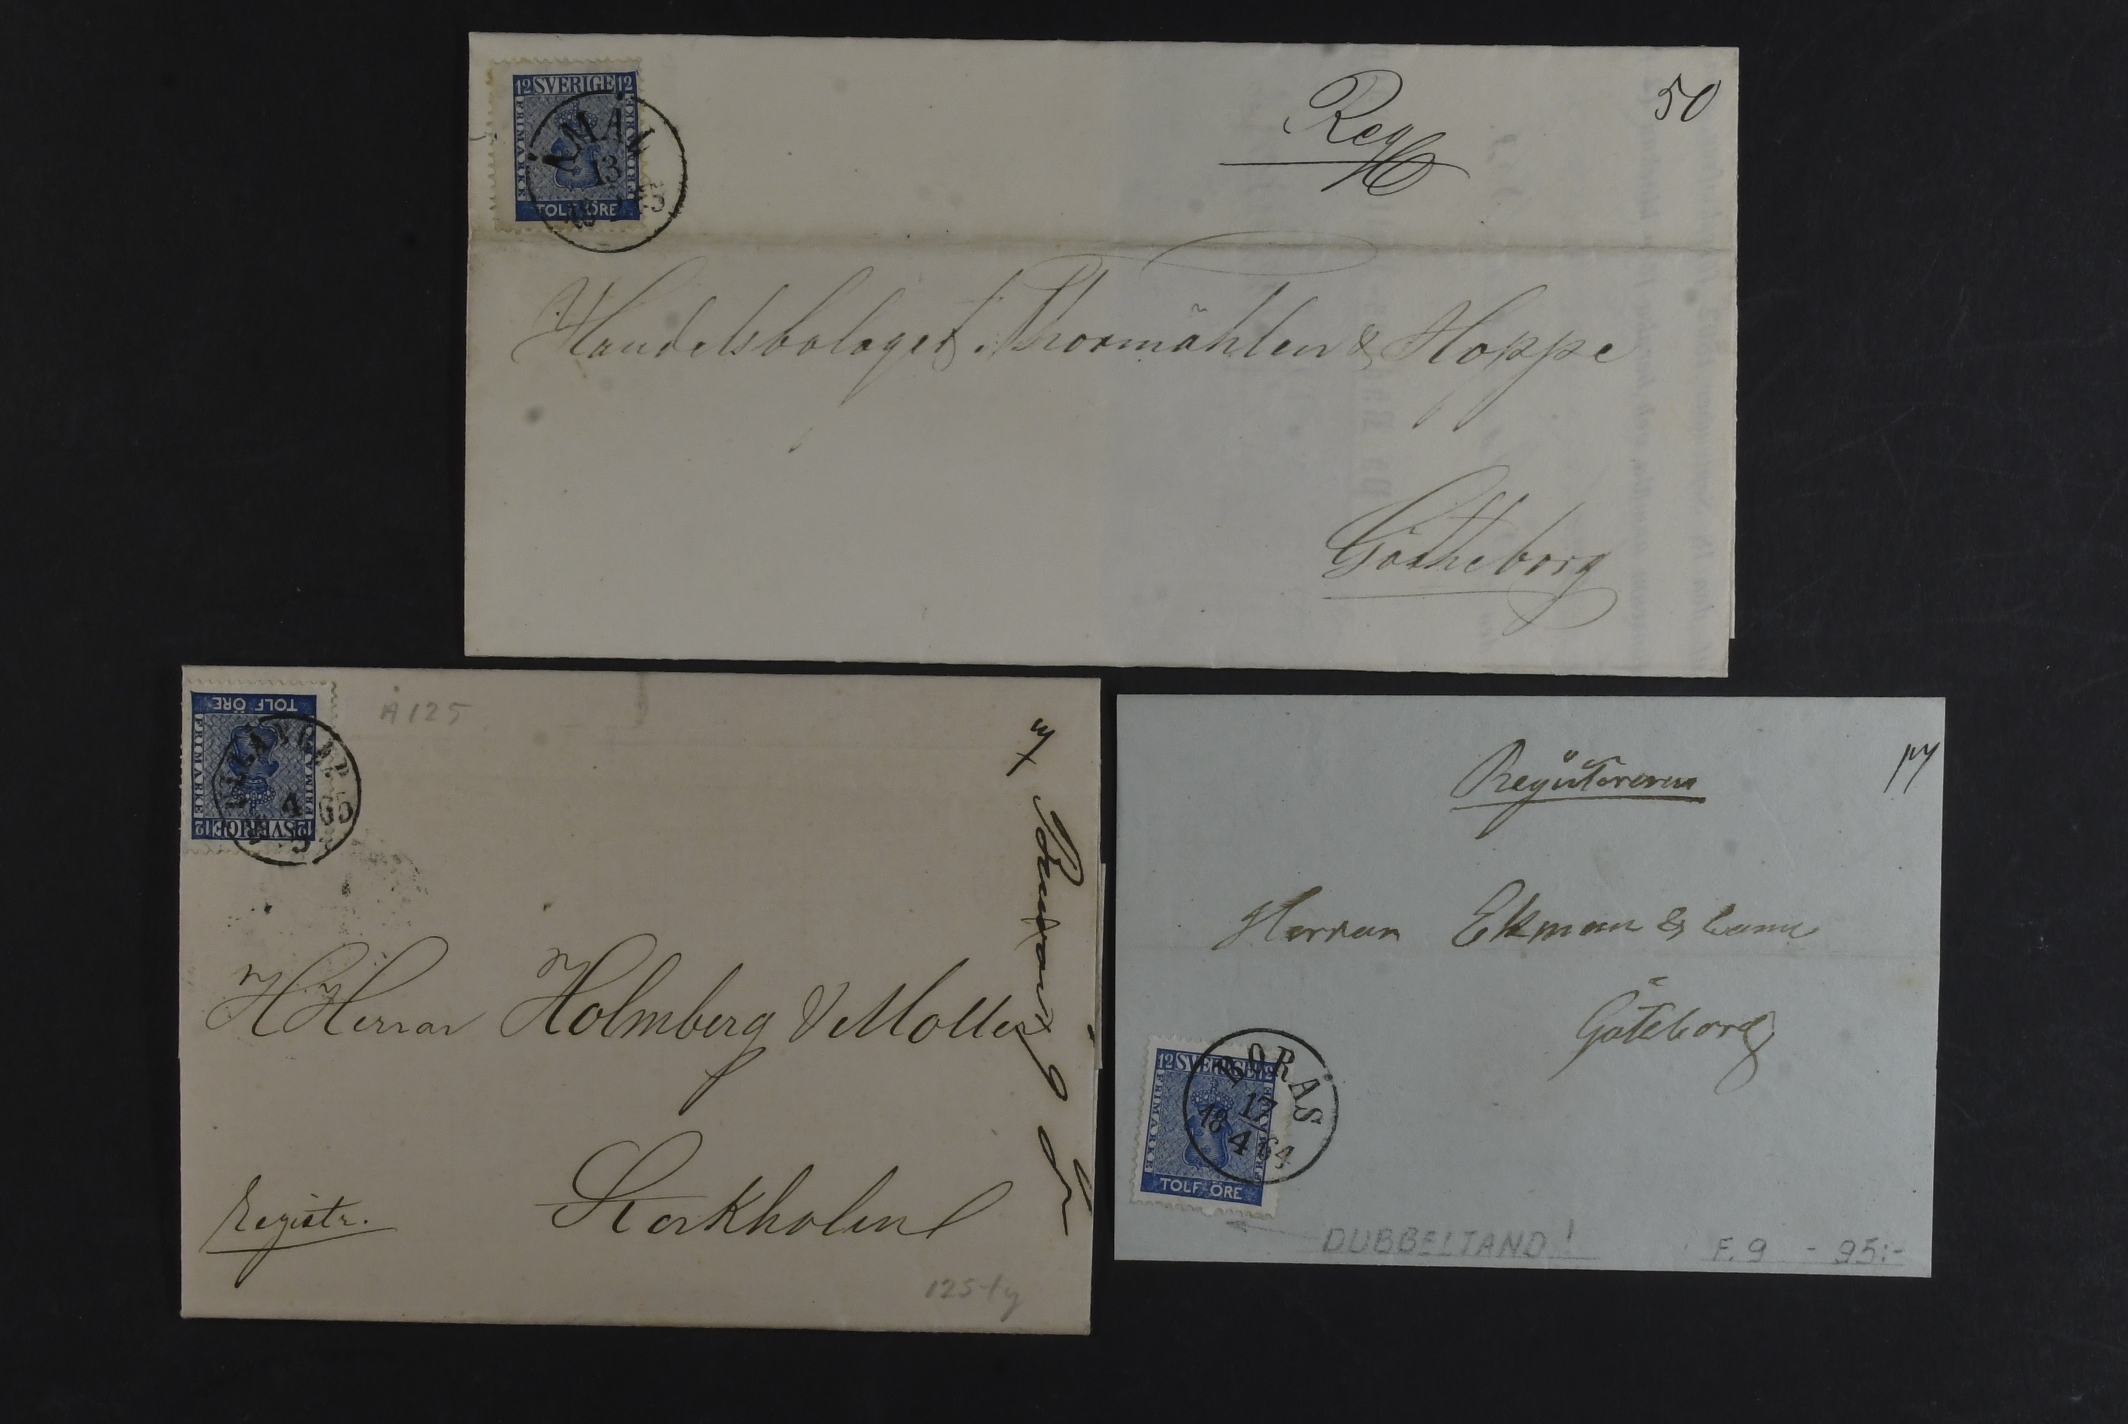 12 SVERIGE 12
FRIMÄRKE
TOLF ÖRE
ÅMÅL
13
Reg
50
Handelsbolaget Thormählen & Hoppe
Götheborg
TOLF ÖRE
FRIMÄRKE
12 SVERIGE 12
4
65
A125
HHerrar Holmberg & Möller
Stockholm
Registr.
125:-
Registreras
17
Herrar Ekman & Comp
Göteborg
12 SVERIGE 12
FRIMÄRKE
TOLF ÖRE
BORÅS
17
18 4 64
DUBBELTAND!
F.9 - 95:-